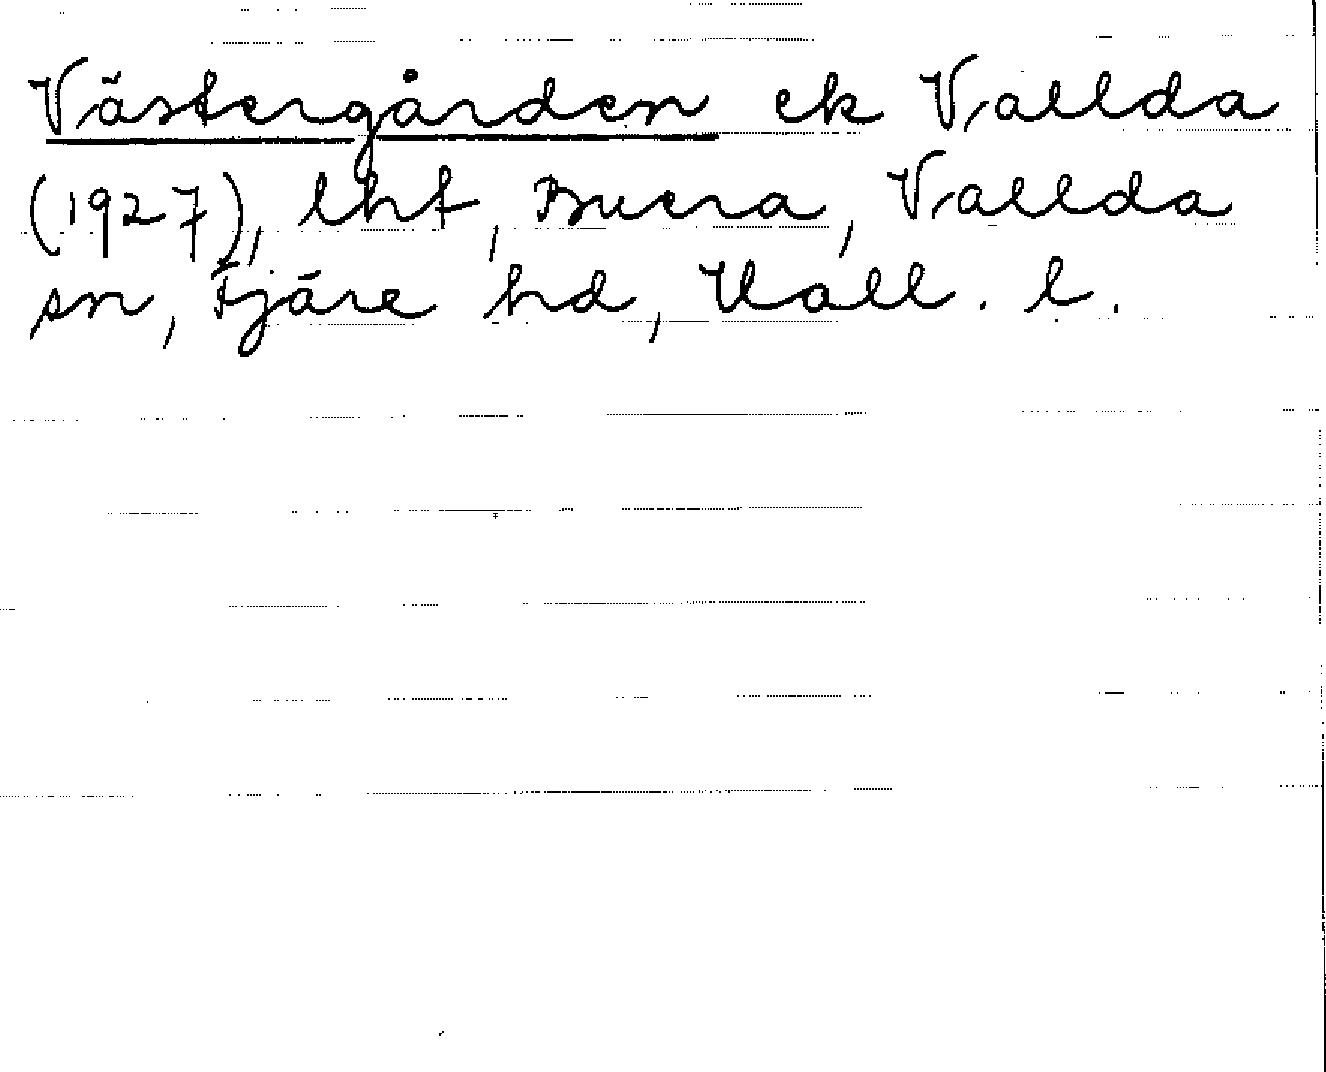 Västergården ek Vallda
(1927), lht, Buera, Vallda
sn, Fjäre hd, Hall. l.